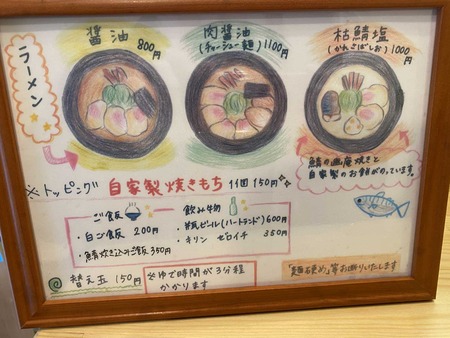 ラーメン
醤油
800円
肉醤油
(チャーシュー麺) 1100円
枯鯖塩
(かれさばしお) 1000円
鯖の幽庵焼きと
自家製のお餅がのっています。
※トッピング 自家製焼きもち 1個 150円
ご飯
・白ご飯 200円
・鯖炊き込みご飯 350円
飲み物
・瓶ビール(ハートランド) 600円
・キリン ゼロイチ 350円
替え玉 150円
ゆで時間が3分程
かかります
「麺硬め」等お断りいたします